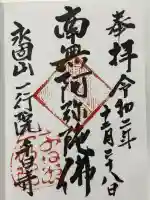 奉拝
令和二年
十二月二十八日
南無阿弥陀佛
永固山
一行院
千日寺